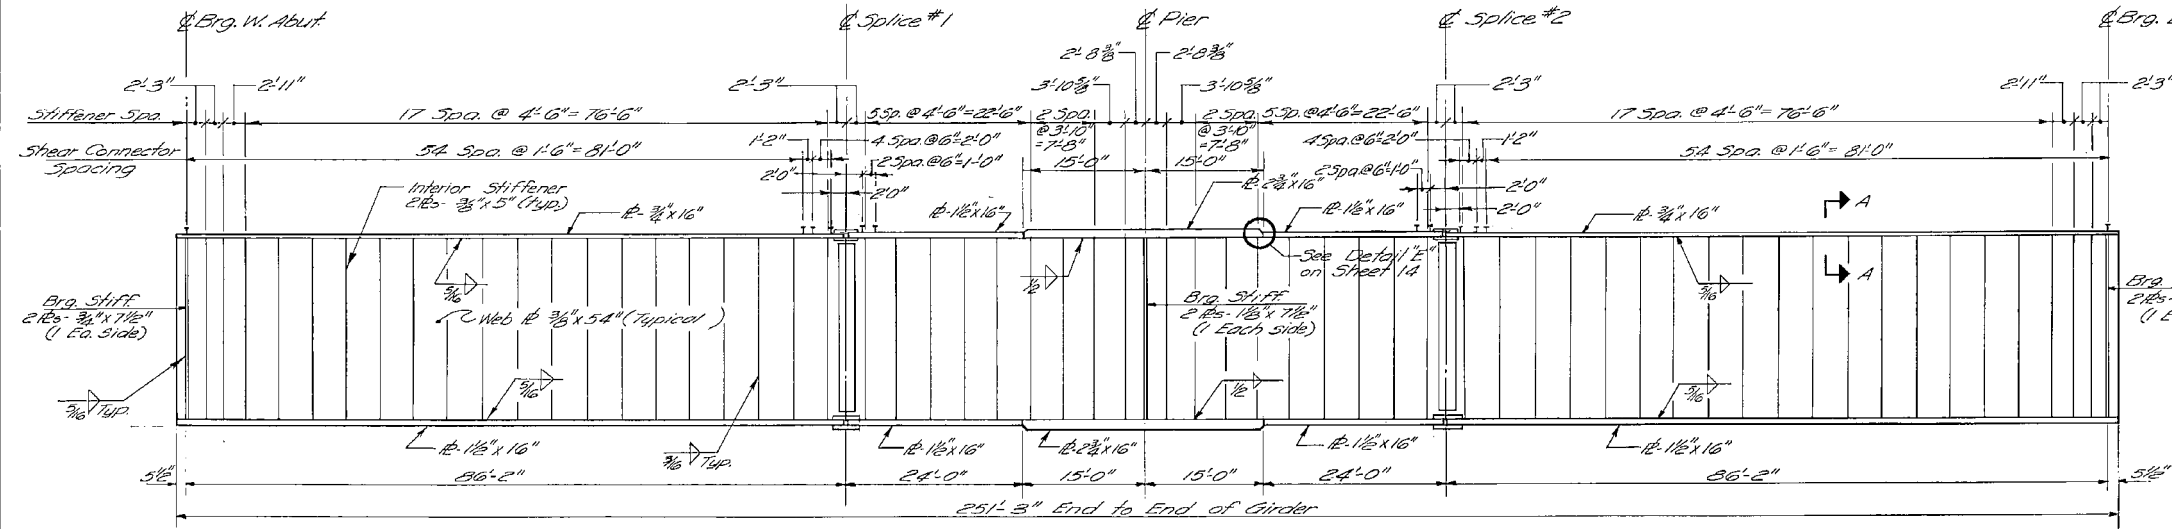 ℄ Brg. W. Abut.
℄ Splice #1
℄ Pier
℄ Splice #2
℄ Brg.
2'-8⅜"
2'-8⅜"
2'-3"
2'-11"
2'-3"
3'-10⅝"
3'-10⅝"
2'-3"
2'-11"
2'-3"
Stiffener Spa.
17 Spa. @ 4'-6" = 76'-6"
5 Sp. @ 4'-6" = 22'-6"
2 Spa.
@ 3'-10"
= 7'-8"
2 Spa.
@ 3'-10"
= 7'-8"
5 Sp. @ 4'-6" = 22'-6"
17 Spa. @ 4'-6" = 76'-6"
Shear Connector
Spacing
54 Spa. @ 1'-6" = 81'-0"
1'-2"
4 Spa. @ 6" = 2'-0"
2 Spa. @ 6" = 1'-0"
2'-0"
2'-0"
15'-0"
15'-0"
4 Spa. @ 6" = 2'-0"
2 Spa. @ 6" = 1'-0"
1'-2"
54 Spa. @ 1'-6" = 81'-0"
2'-0"
2'-0"
Interior Stiffener
2 ℞s - ⅜" x 5" (typ.)
℞ - ¾" x 16"
℞ - 1½" x 16"
℞ - 2¾" x 16"
℞ - 1½" x 16"
℞ - ¾" x 16"
A
A
See Detail "E"
on Sheet 14
5/16
1/2
5/16
Brg. Stiff.
2 ℞s - ¾" x 7½"
(1 Ea. side)
Web ℞ ⅜" x 54" (Typical)
Brg. Stiff.
2 ℞s - 1⅛" x 7½"
(1 Each side)
Brg.
2 ℞s -
(1 E
5/16 Typ.
5/16
1/2
5/16
℞ - 1½" x 16"
3/16 Typ.
℞ - 1½" x 16"
℞ - 2¾" x 16"
℞ - 1½" x 16"
℞ - 1½" x 16"
5½"
86'-2"
24'-0"
15'-0"
15'-0"
24'-0"
86'-2"
5½"
251'-3" End to End of Girder